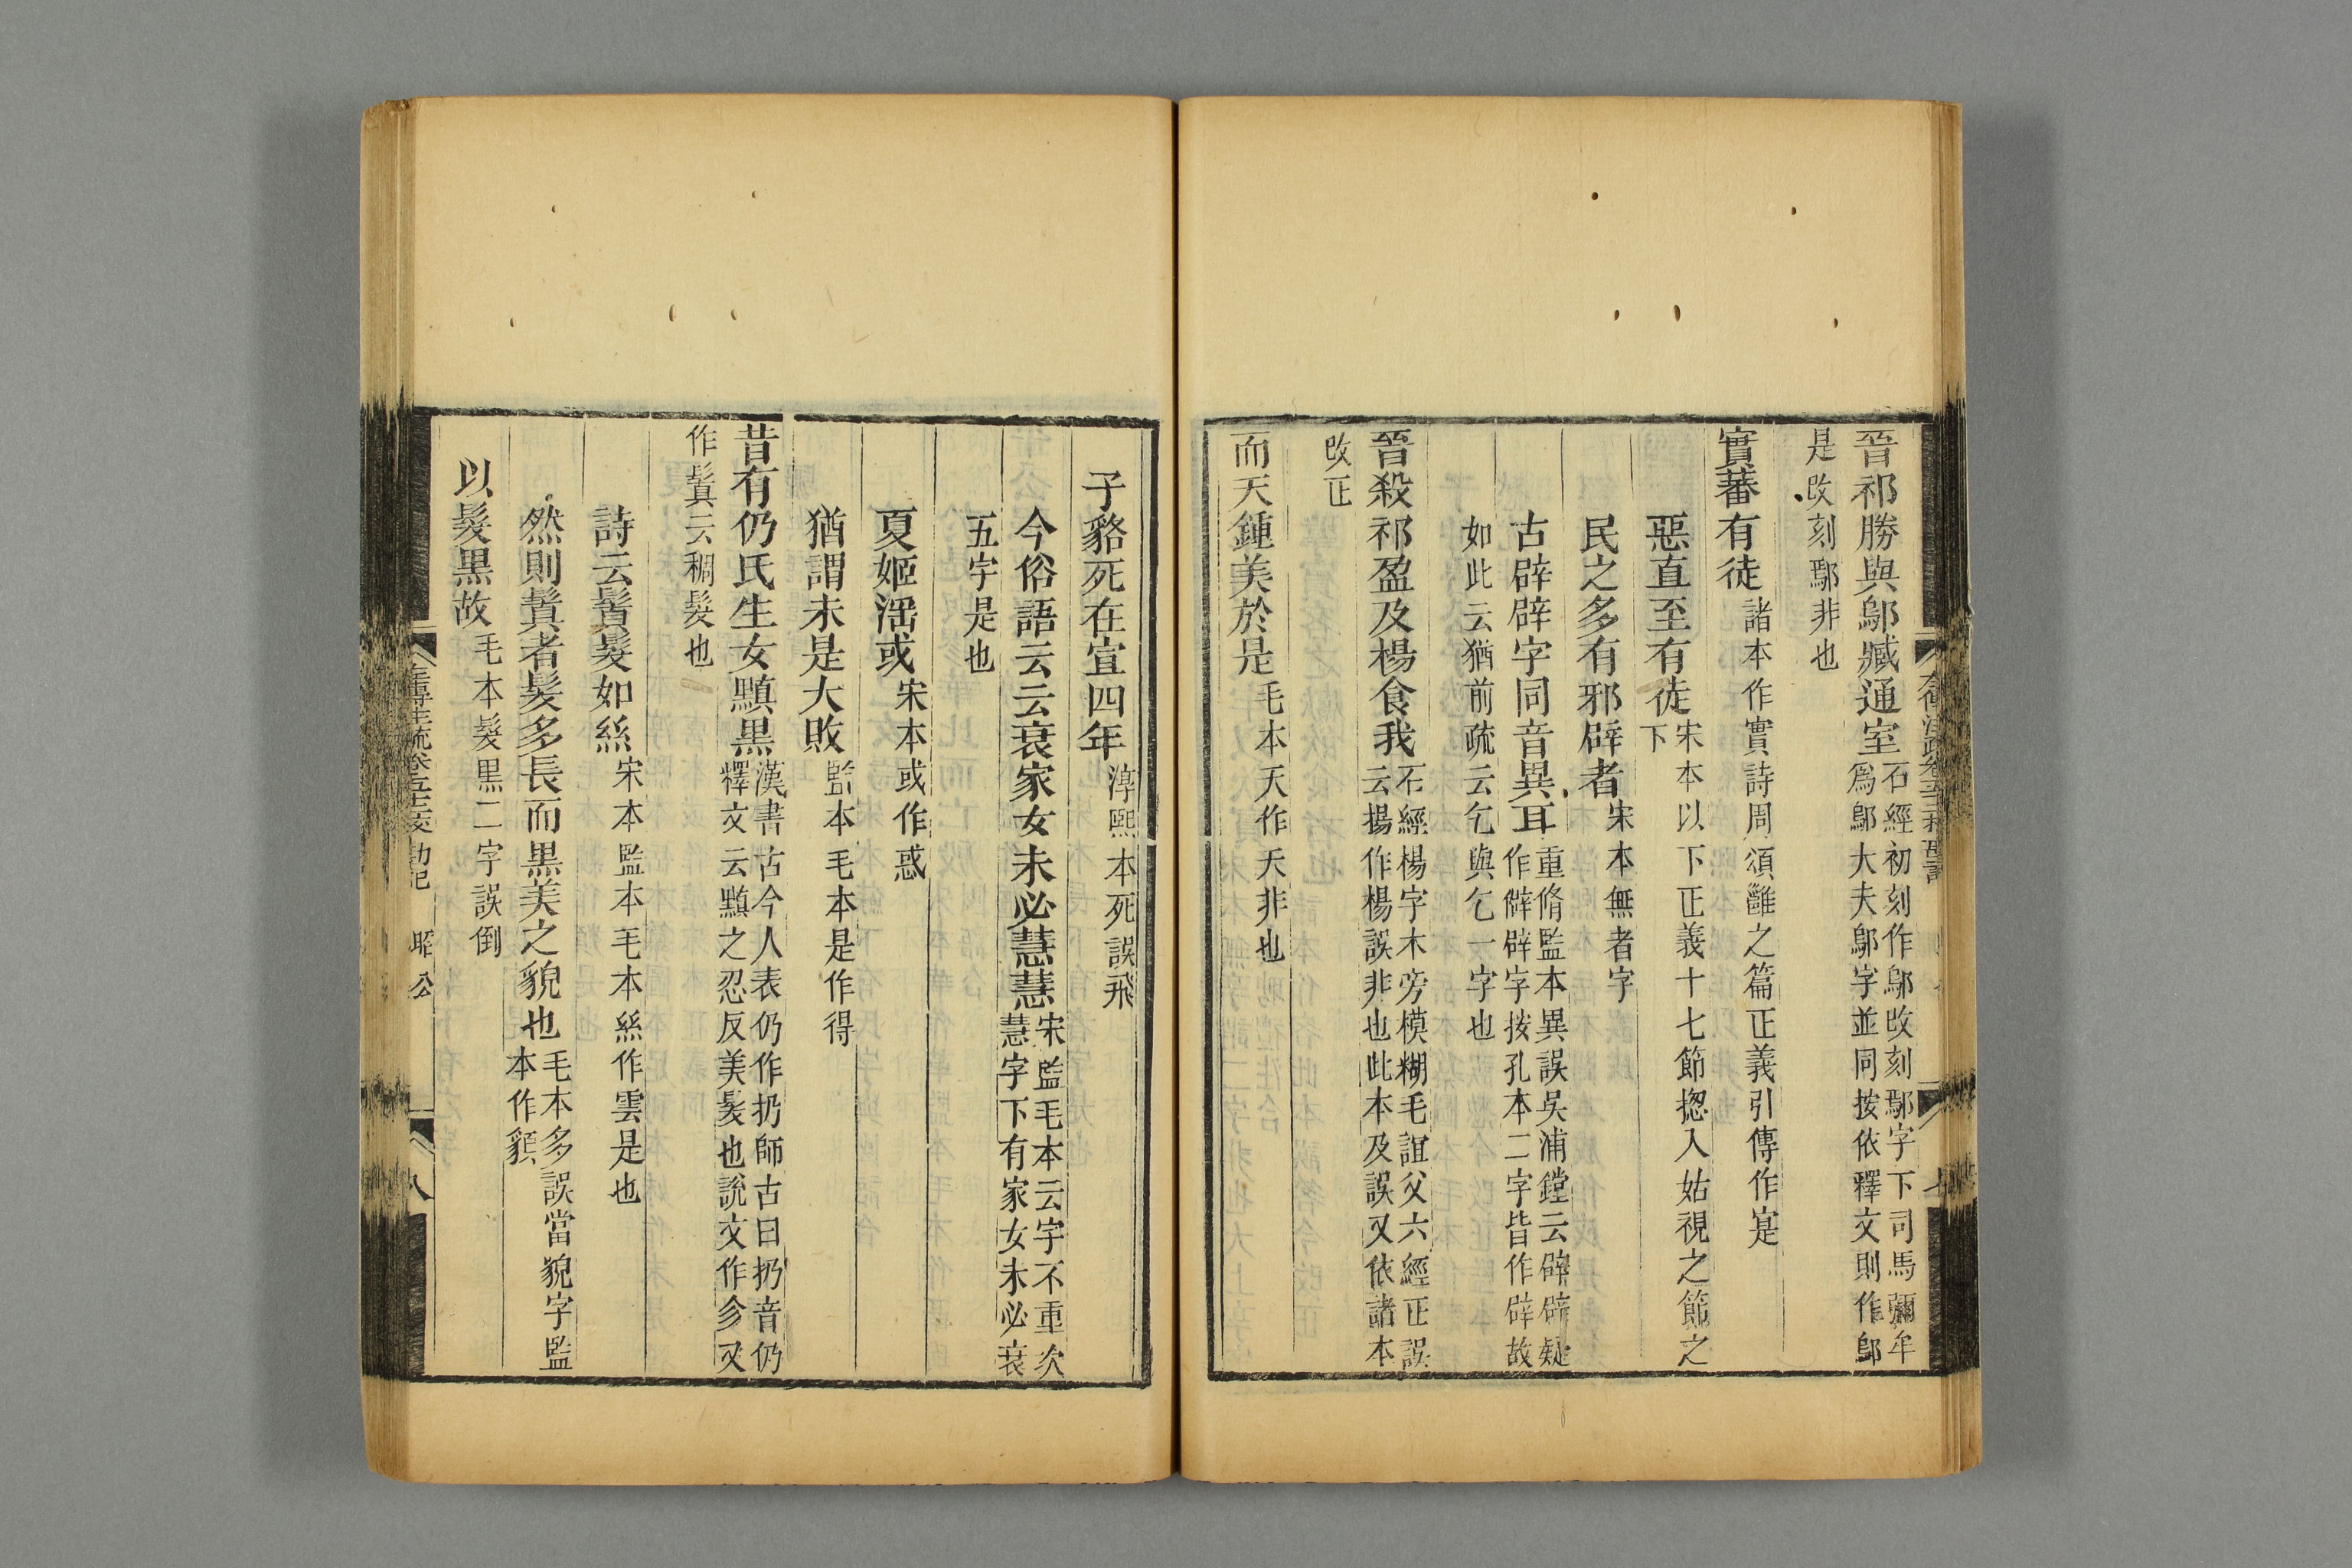 晉祁勝與鄔臧通室石經初刻作鄔改刻鄢字下司馬彌牟
爲鄔大夫鄔字並同按依釋文則作鄔
是改刻鄢非也
實蕃有徒諸本作實詩周頌雝之篇正義引傳作寔
惡直至有徒宋本以下正義十七節揔入姑視之節之
下
民之多有邪辟者宋本無者字
古辟辟字同音異耳重脩監本異誤吳浦鏜云辟辟疑
作僻辟字按孔本二字皆作辟故
如此云猶前疏云乞與乞一字也
晉殺祁盈及楊食我石經楊字木旁模糊毛誼父六經正誤
云揚作楊誤非也此本及誤又依諸本
改正
而天鍾美於是毛本天作夭非也
子貉死在宣四年淳熙本死誤飛
今俗語云云衰家女未必慧慧宋監毛本云字不重次
慧字下有家女未必衰
五字是也
夏姬滛或宋本或作惑
猶謂未是大敗監本毛本是作得
昔有仍氏生女黰黒漢書古今人表仍作扔師古曰扔音仍
釋文云黰之忍反美髮也說文作㐱又
作鬒云稠髮也
詩云鬒髮如絲宋本監本毛本絲作雲是也
然則鬒者髮多長而黒美之貌也毛本多誤當貌字監
本作䫉
以髮黒故毛本髮黒二字誤倒
昭公
八